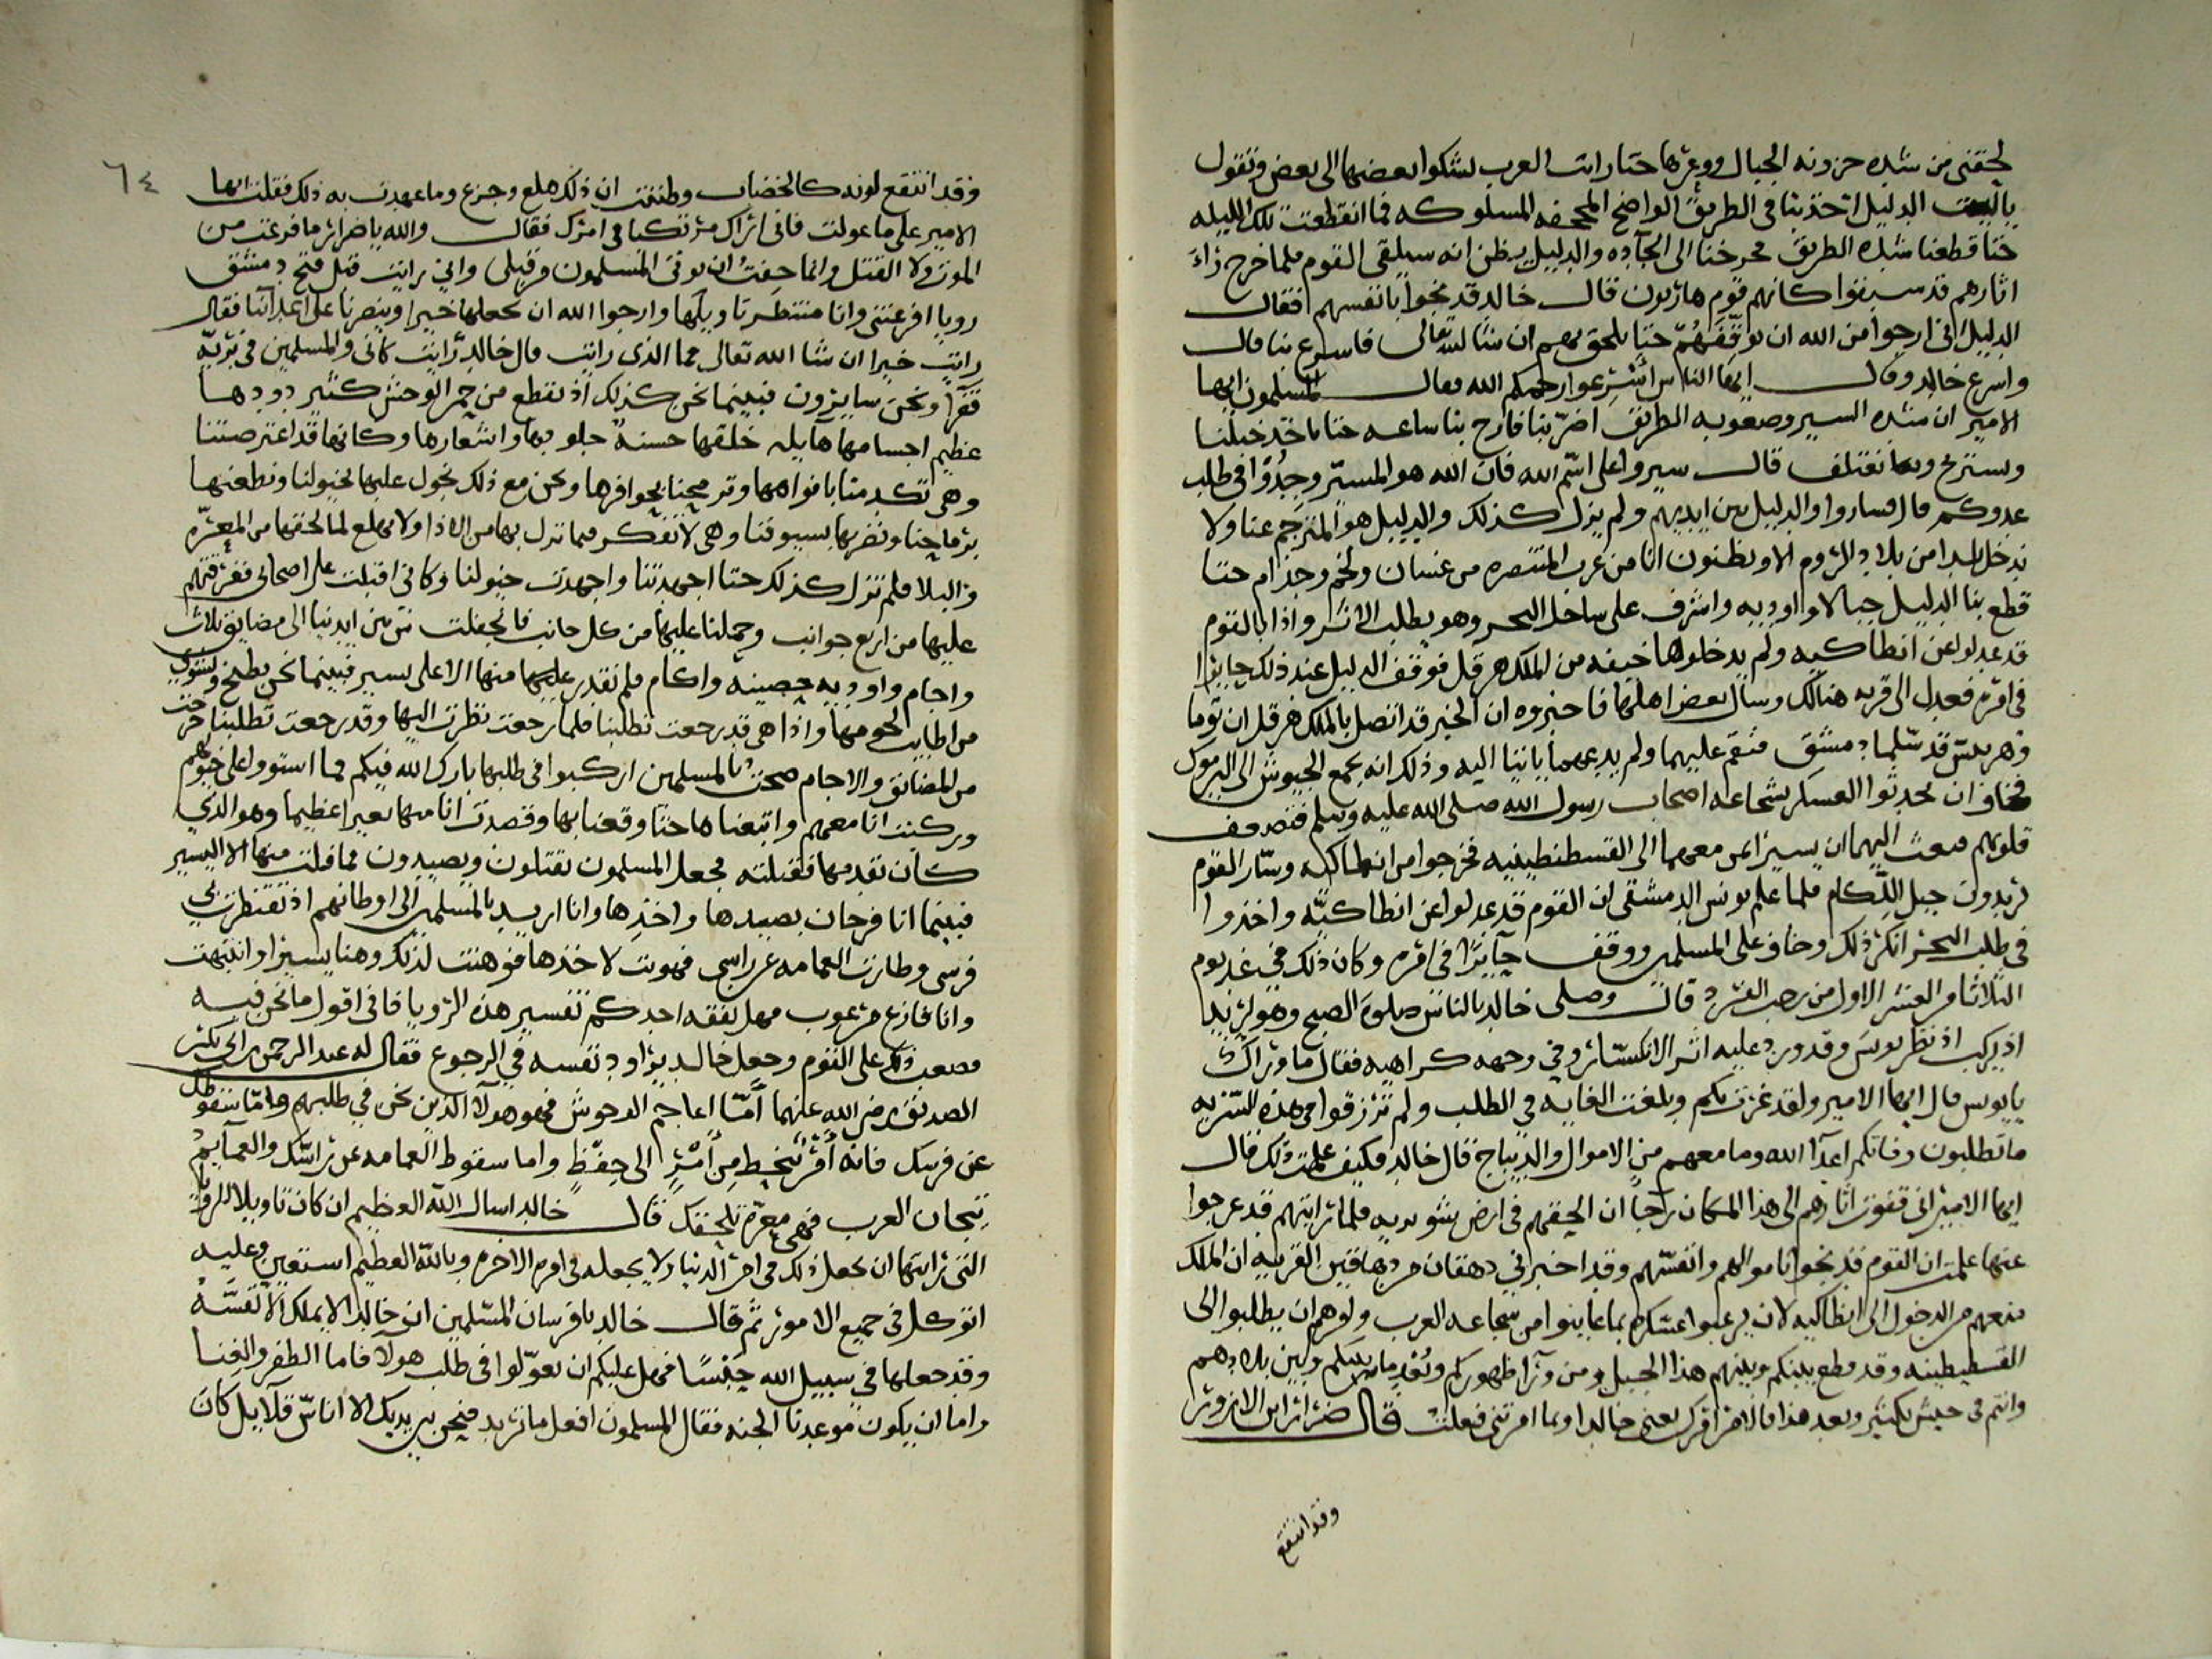 لحقني من شده حزونه الجبال ووعرها حتا رات العرب لشكوا بعضها الى بعض وتقول
ياليت الدليل اخذ بنا في الطريق الواضح المحجفه المسلوكه فما انقطعت تلك الليله
حتا قطعنا شده الطريق فخرجنا الى الجآده والدليل يظن انه سيلقى القوم فلما خرج رأى
اثارهم قد سبقوا كانهم قوم هاربون قال خالد قد نجوا بانفسهم فقال
الدليل اني ارجوا من الله ان يوقفهم حتا يلحق بهم ان شا الله تعالى فاسرع بنا قال
واسرع خالد وقال ايها الناس اسرعوا رحمكم الله فقال المسلمون ايها
الامير ان شده السير وصعوبه الطريق اضر بنا فارح بنا ساعه حتا ناخذ خيلنا
ونستريح وبها نعتلف قال سيروا على اسم الله فان الله هو الميسر وجدوا في طلب
عدوكم قال فساروا والدليل بين ايديهم ولم يزل كذلك والدليل هو المترجم عنا ولا
ندخل بلدا من بلاد الروم الا ويظنون انا من عرب المتنصره من غسان ولخم وجذام حتا
قطع بنا الدليل جبالا واوديه واشرف على ساحل البحر وهو يطلب الاثر واذا بالقوم
قد عدلوا عن انطاكيه ولم يدخلوها خيفه من الملك هرقل فوقف الدليل عند ذلك حايرا
في امره فعدل الى قريه هنالك وسال بعض اهلها فاخبروه ان الخبر قد اتصل بالملك هرقل ان توما
وهربيس قد سلما دمشق فنقم عليهما ولم يدعهما ياتيا اليه وذلك انه يجمع الجيوش الى اليرموك
فخاف ان يحدثوا العسكر بشجاعه اصحاب رسول الله صلى الله عليه وسلم فتضعف
قلوبهم فبعث اليهما ان يسيرا بمن معهما الى القسطنطينيه فخرجوا من انطاكيه وسار القوم
يريدون جبل اللكام فلما علم يونس الدمشقي ان القوم قد عدلوا عن انطاكيه واخذوا
في طلب البحر انكر ذلك وخاف على المسلمين ووقف حايرا في امره وكان ذلك في غد يوم
الثلاثا من العشر الاول من رجب الفرد قال وصلى خالد بالناس صلوة الصبح وهو يريد
اذ يركب اذ نظر يونس وقد ورد عليه اثر الانكسار وفي وجهه كراهيه فقال ما وراك
يايونس قال ايها الامير ولقد غررت بكم وبلغت الغايه في الطلب ولم ترزقوا في هذه السريه
ما تطلبون وفاتكم اعدآ الله وما معهم من الاموال والديباج قال خالد فكيف علمت ذلك قال
ايها الامير اني قفوت اثارهم الى هذا المكان رجا ان الحقهم في ارض سوريه فلما رايتهم قد عرجوا
عنها علمت ان القوم قد نجوا باموالهم وانفسهم وقد اخبرني دهقان من دهاقين القريه ان الملك
منعهم من الدخول الى انطاكيه لان لا يرعبوا عسكره بما عاينوا من شجاعه العرب وامرهم ان يطلبوا الى
القسطنطينيه وقد قطع بينكم وبينهم هذا الجبل ومن ورآ ظهوركم وبعد ما بينكم وبين بلادهم
وانتم في جيش كثير وبعد هذا فالامر امرك يعني خالدا وبما امرتني فعلت قال ضرار ابن الازور
وقد انتقع
٦٤
وقد انتقع لونه كالخضاب وظننت ان ذلك هلع وجزع وما عهدت به ذلك فقلت ايها
الامير على ما عولت فاني اراك مرتكبا في امرك فقال والله ياضرار ما فزعت من
الموت ولا القتل وانما خفت ان يوتى المسلمون من قبلي واني رايت قبل فتح دمشق
رويا افزعتني وانا منتظر تاويلها وارجوا الله ان يجعلها خيرا وينصرنا على اعدآئنا فقال
رايت خيرا ان شا الله تعالى فما الذي رايت قال خالد رايت كاني والمسلمين في بريه
قفرا ونحن سايرون فبينما نحن كذلك اذ بقطع من حمر الوحش كثير دودها
عظيم اجسامها هايله خلقها حسنة جلودها واشعارها وكانها قد اعترضتنا
وهي تكدمنا بافواهها وترمحنا بحوافرها ونحن مع ذلك نجول عليها بخيولنا ونطعنها
برماحنا ونضربها بسيوفنا وهي لا تفكر فيما نزل بها من الاذا ولا تهلع لما لحقها من المعره
والبلا فلم نزل كذلك حتا اجهدتنا واجهدت خيولنا وكاني اقبلت على اصحابي ففرقتهم
عليها من اربع جوانب وحملنا عليها من كل جانب فانجفلت من بين ايدينا الى مضايق تلال
واجام واوديه حصينه واكام فلم نقدر عليها منها الا على يسير فبينما نحن نطبخ ونشوي
من اطايب لحومها واذا هي قد رجعت تطلبنا فلما رجعت نظرت اليها وقد رجعت تطلبنا وخرجت
من المضايق والاجام صحت بالمسلمين اركبوا في طلبها بارك الله فيكم فما استووا على خيولهم
وركبت انا معهم واتبعناها حتا وقعنا بها وقصدت انا منها بعيرا عظيما وهو الذي
كان تقدمها فقتلته فجعل المسلمون يقتلون ويصيدون فما فلت منها الا اليسير
فبينما انا فرحان بصيدها واخذها وانا اريد بالمسلمين الى اوطانهم اذ تقنطر بي
فرسي وطارت العمامه عن راسي فهويت لاخذها فوهنت لذلك وهنا يسيرا وانتبهت
وانا فازع مرعوب فهل يفقه احدكم تفسير هذه الرويا فاني اقول ما نحن فيه
فصعب ذلك على القوم وجعل خالد يراود نفسه في الرجوع فقال له عبد الرحمن بن ابي بكر
الصديق رضي الله عنهما أمّا اعاجم الوحوش فهو هولآ الذين نحن في طلبهم وامّا سقوطك
عن فرسك فانه أمْر تنحط مِن أَمْرٍ الى حِفّظٍ واما سقوط العمامه عن راسك والعمايم
تيجان العرب فهي معرّة تلحقك قال خالد اسال الله العظيم ان كان تاويلا للرويا
التي رايتها ان يجعل ذلك في امر الدنيا ولا يجعله في امر الاخره وبالله العظيم استعين وعليه
اتوكل في جميع الامور ثم قال خالد يا فرسان المسلمين ان خالدا لا يملك الا نفسه
وقد جعلها في سبيل الله حِبْسًا فهل عليكم ان تعوّلوا في طلب هولآ فاما الظفر والغنا
واما ان يكون موعدنا الجنه فقال المسلمون افعل ما تريد فنحن بين يديك الا اناس قلايل كان